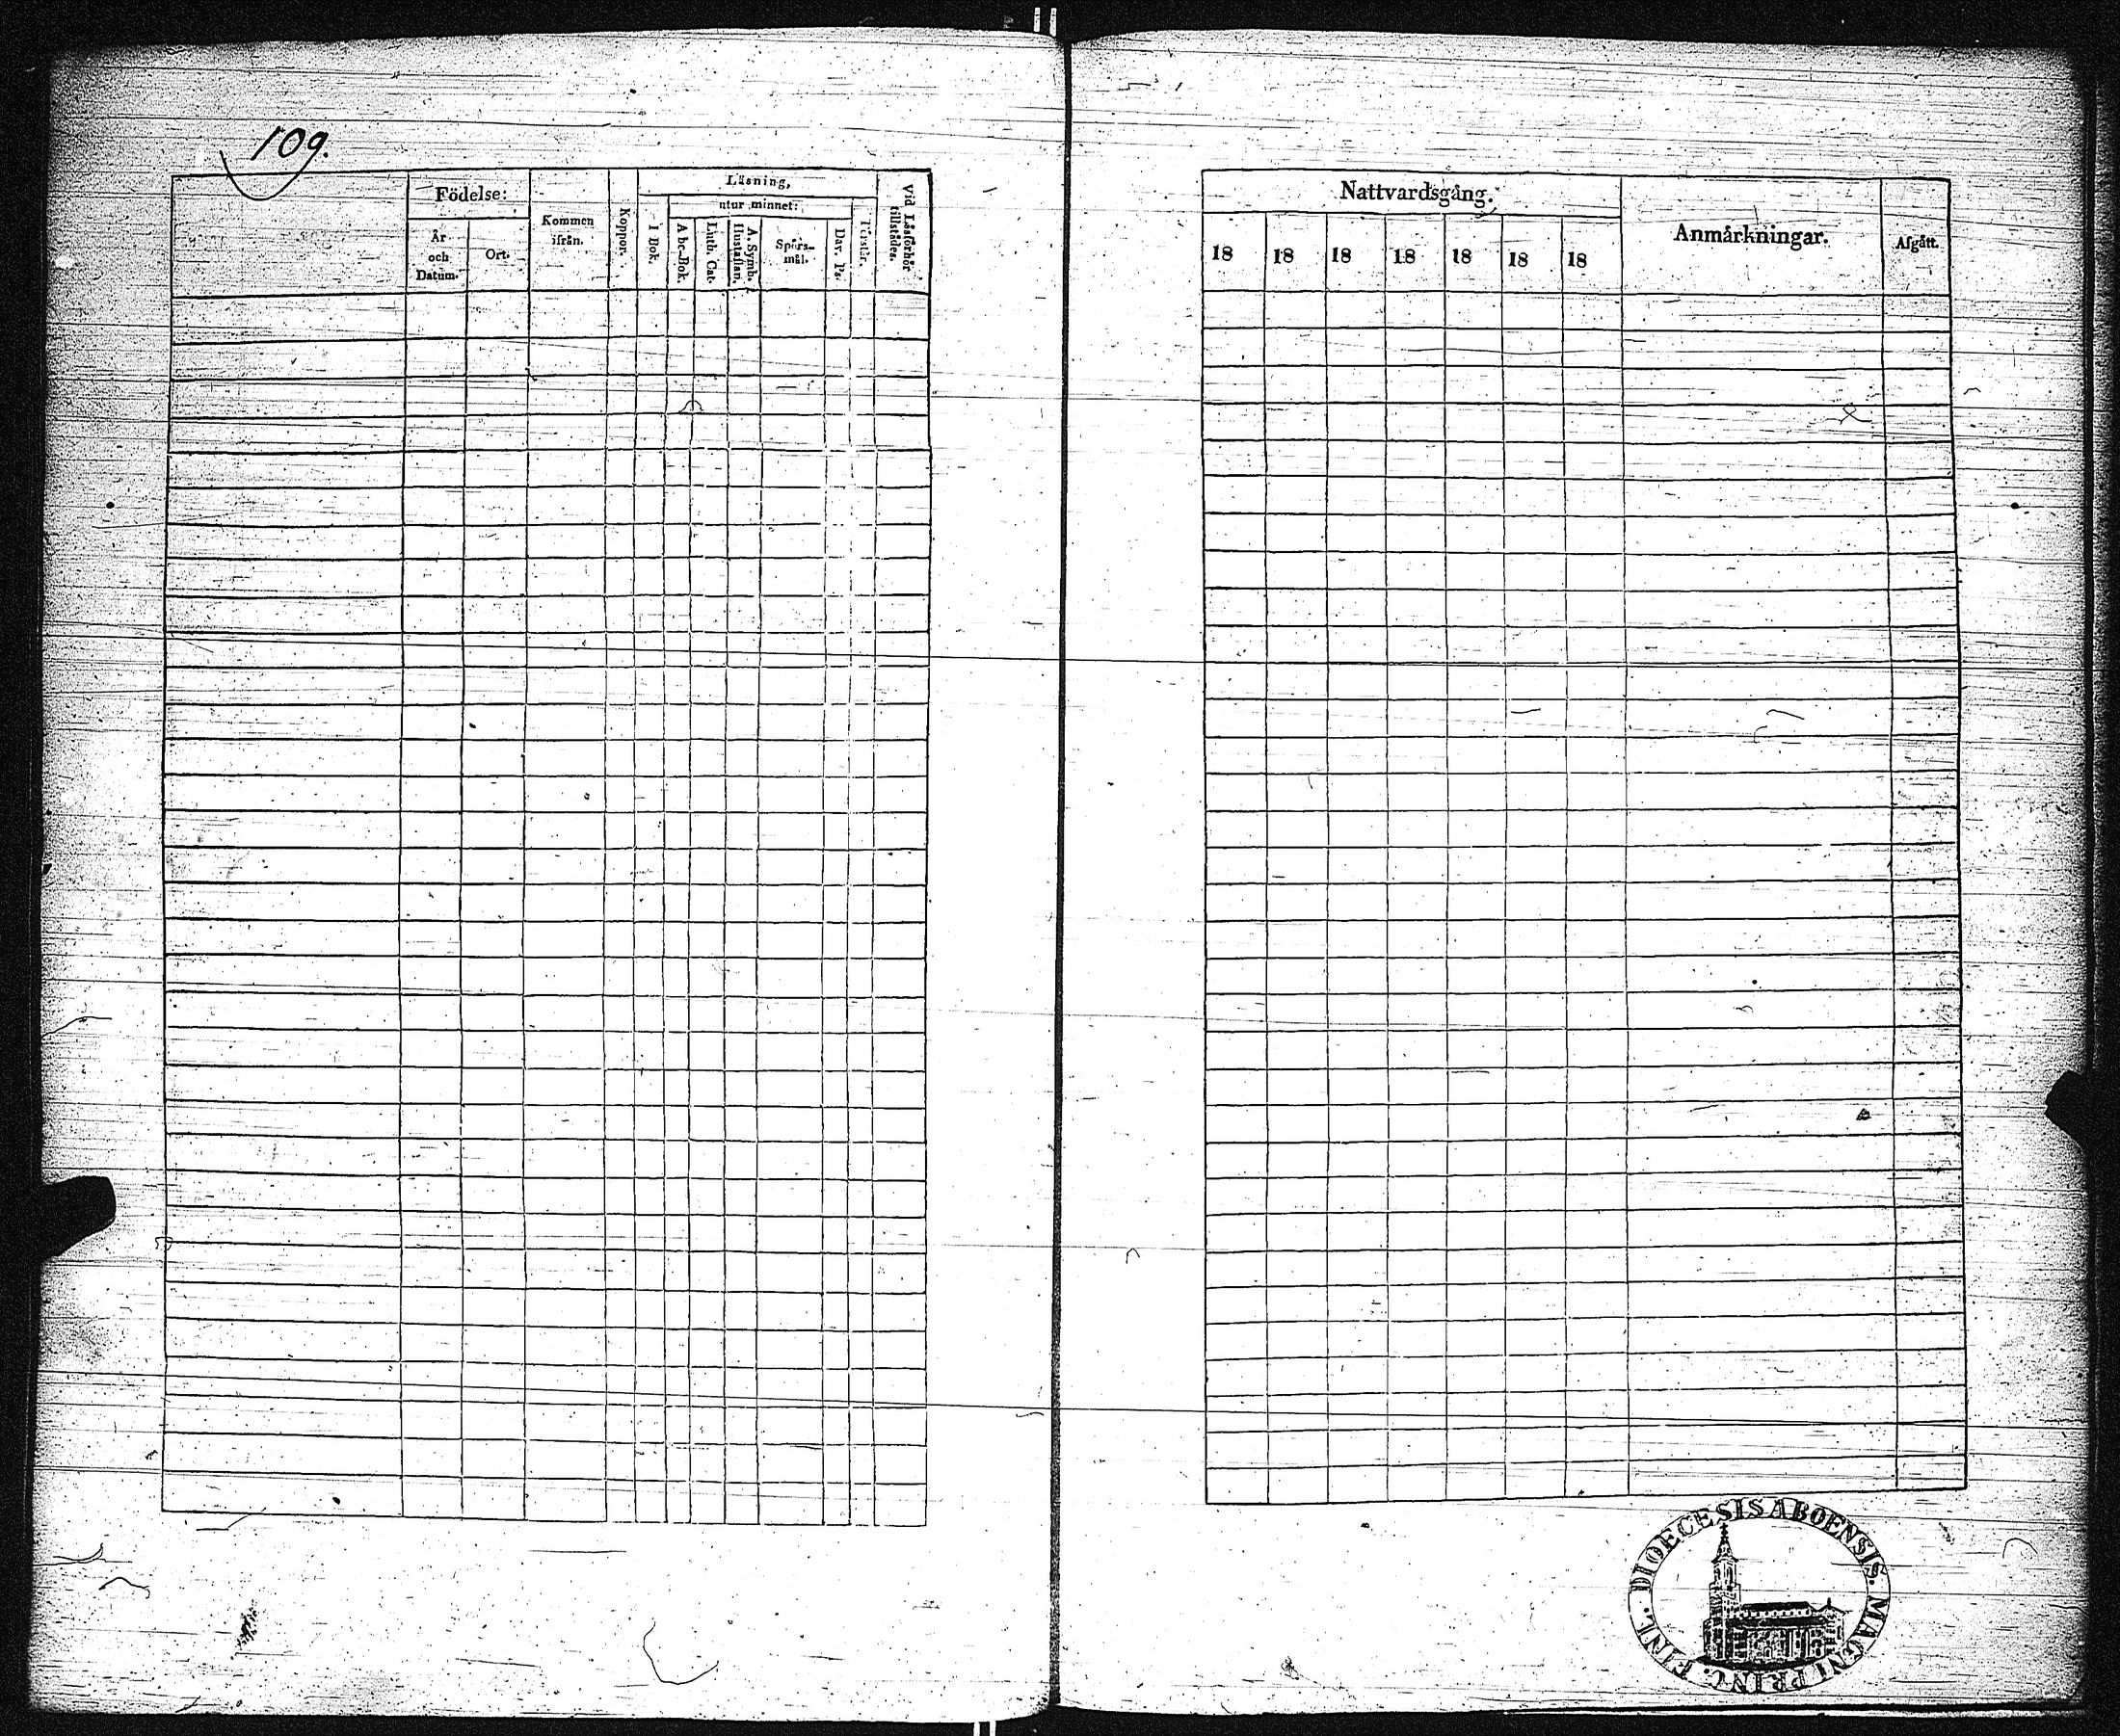 109.
Födelse:
År
och
Datum.
Ort.
Kommen
ifrån.
Koppor.
Läsning,
I Bok.
utur minnet:
A bc-Bok.
Luth. Cat.
A. Symb.
Hustaflan.
Spörs-
mål.
Dav. Ps.
Förstår.
Vid Läsförhör
tillstädes.
Nattvardsgång.
18 18 18 18 18 18 18
Anmärkningar.
Afgått.
DIOECESIS ABOENSIS. MAGNI PRINC. FINL.